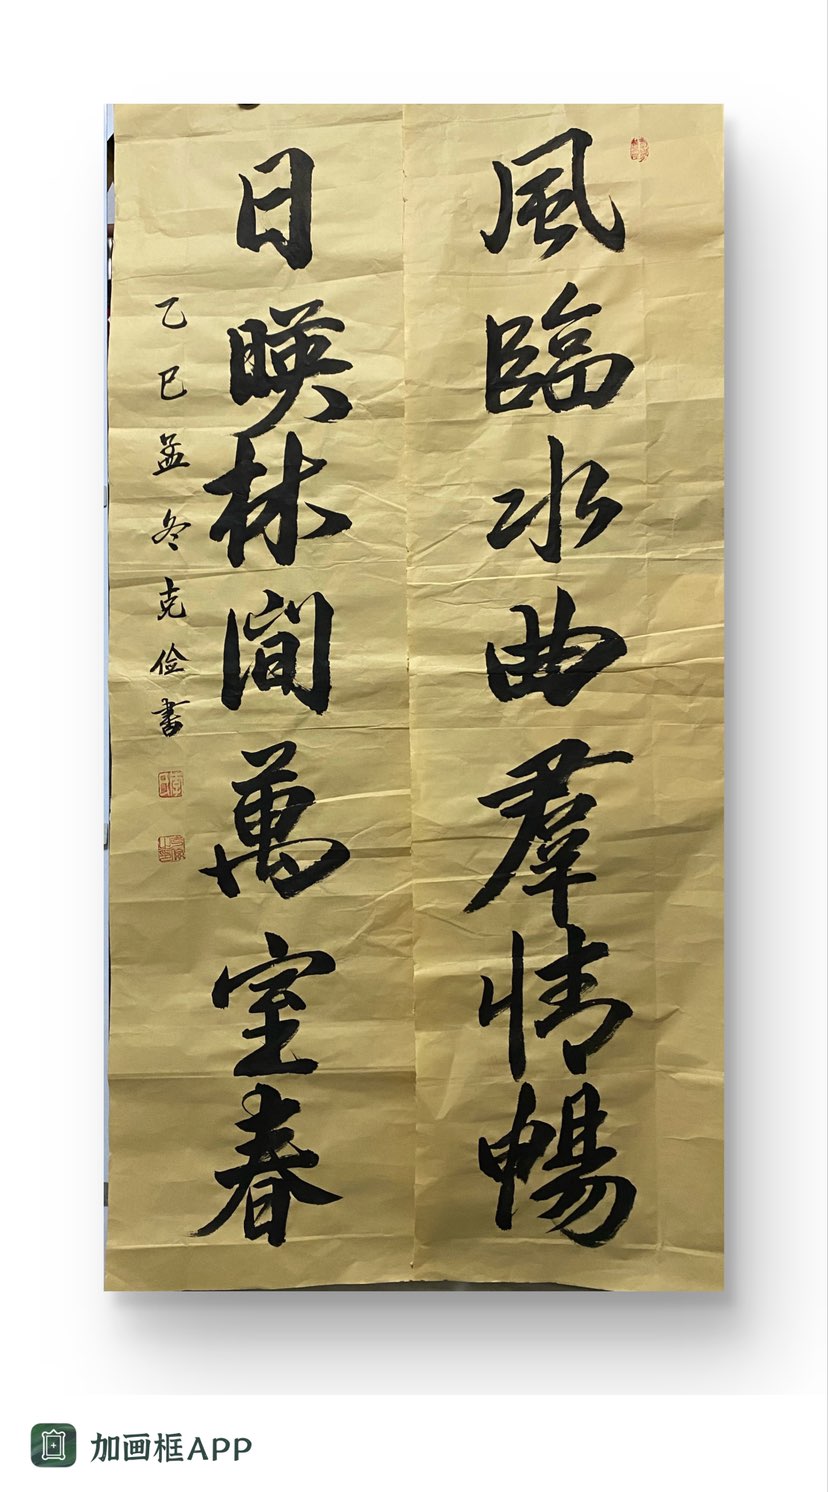 風臨水曲羣情暢
日暎林間萬室春
乙巳孟冬克俭書
加画框APP